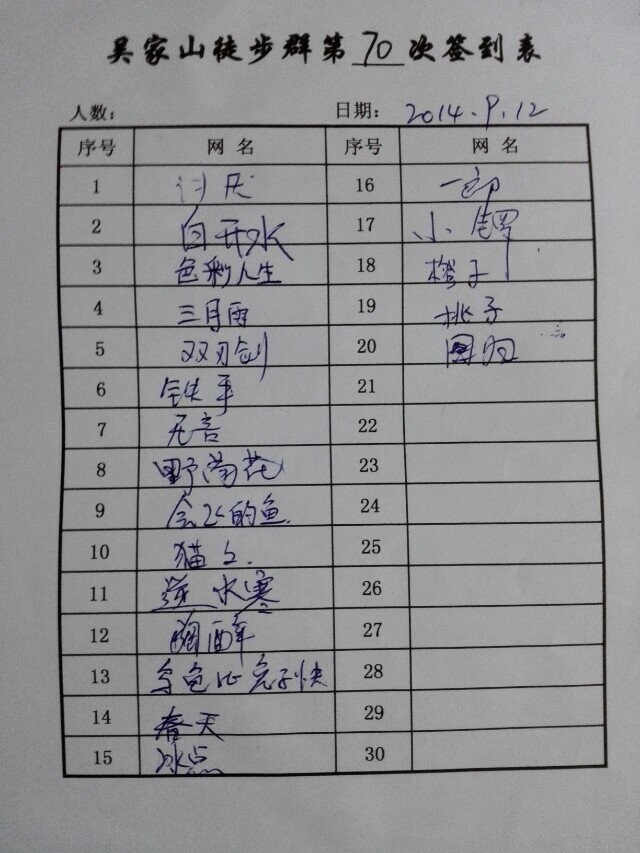 吴家山徒步群第70次签到表
人数: 日期: 2014.9.12
序号 网名 序号 网名
1 讨厌 16 一郎
2 白开水 17 小锣
3 色彩人生 18 橙子
4 三月雨 19 桃子
5 双刃剑 20
6 铁手 21
7 无言 22
8 野菊花 23
9 会飞的鱼. 24
10 猫 25
11 逆水寒 26
12 陶醉 27
13 乌龟比兔子快 28
14 春天 29
15 冰点 30